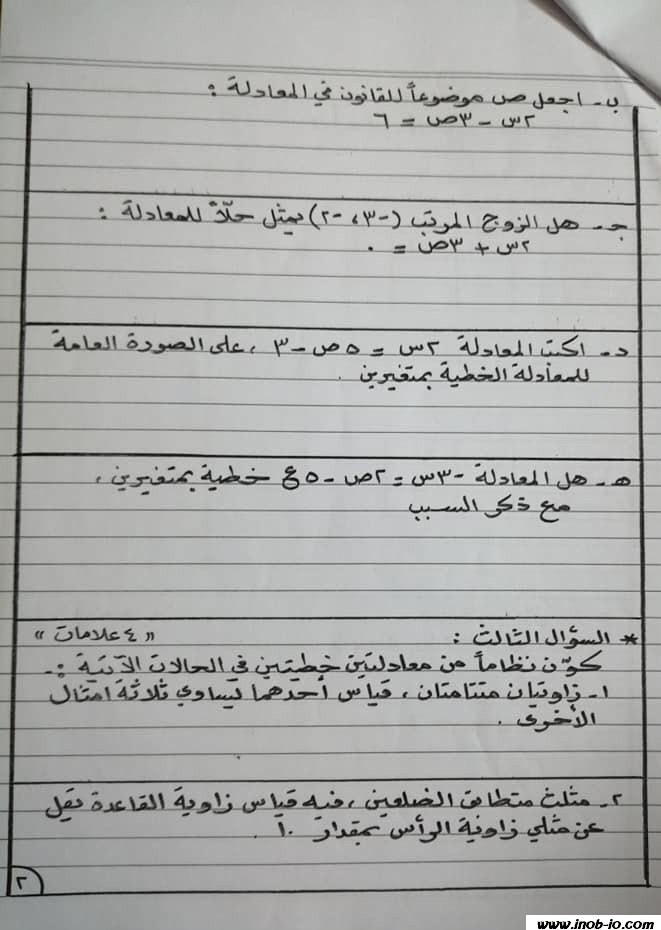 ب- اجعل ص موضوعاً للقانون في المعادلة :
٢س - ٣ص = ٦
ج- هل الزوج المرتب (-٣، -٢) يمثل حلّاً للمعادلة :
٢س + ٣ص = ٠
د- اكتب المعادلة ٢س = ٥ص - ٣ ، على الصورة العامة
للمعادلة الخطية بمتغيرين .
هـ- هل المعادلة -٣س = ٢ص - ٥ع خطية بمتغيرين ،
مع ذكر السبب
* السؤال الثالث : « ٤ علامات »
كوّن نظاماً من معادلتين خطيتين في الحالات الآتية :-
١- زاويتان متتامتان ، قياس أحدهما يساوي ثلاثة امثال
الأخرى .
٢- مثلث متطابق الضلعين ، فيه قياس زاوية القاعدة يقل
عن مثلي زاوية الرأس بمقدار ١٠ .
٢
www.jnob-jo.com